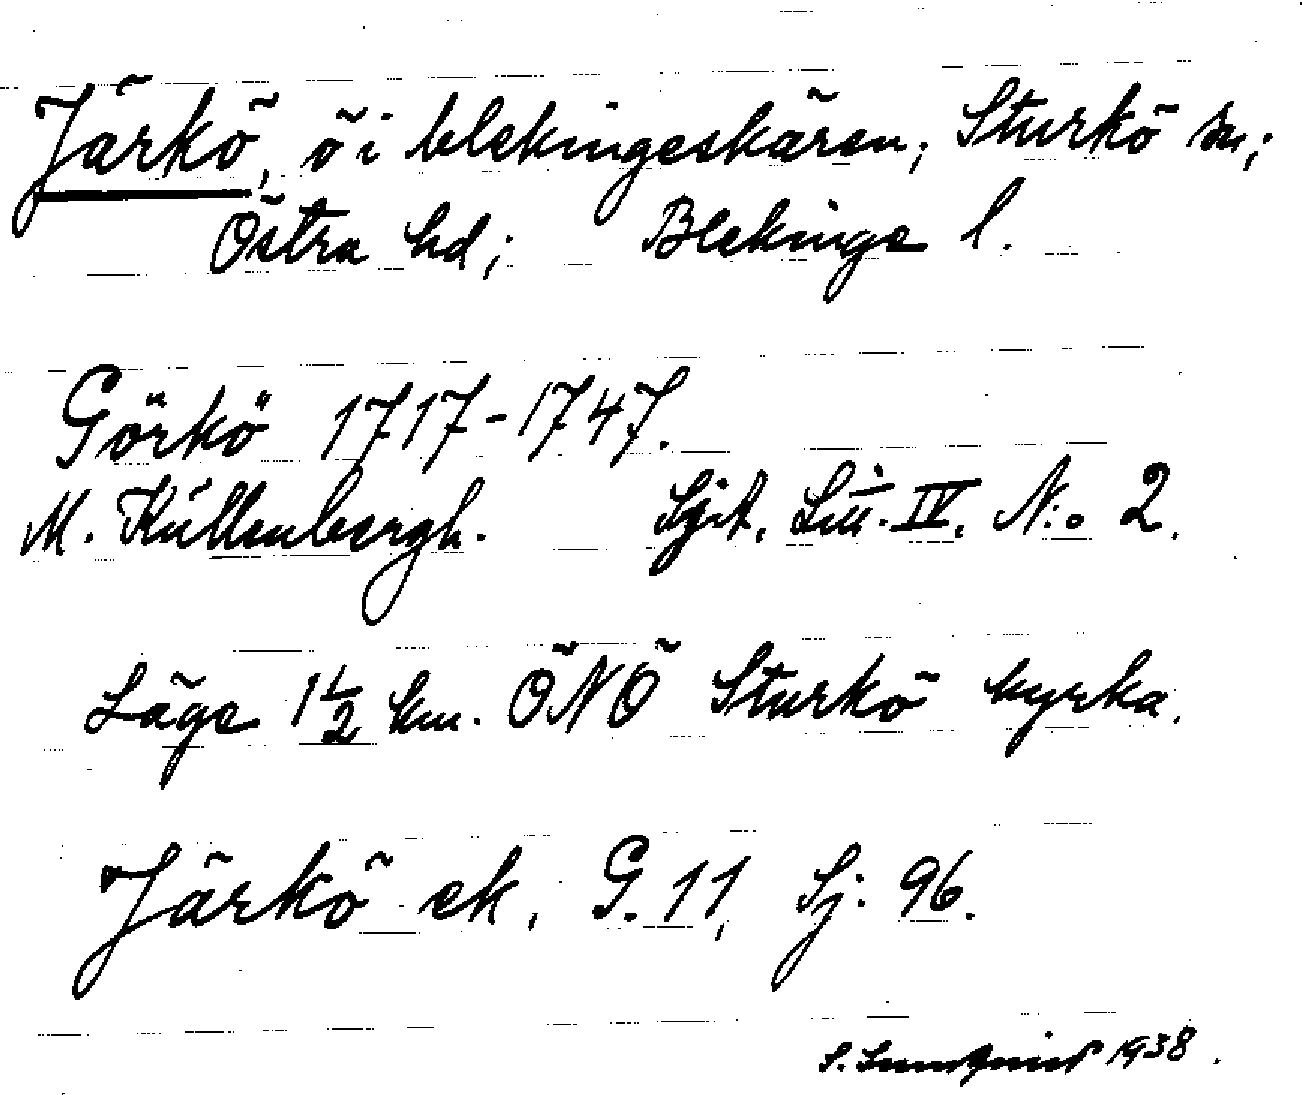 Järkö, ö i blekingeskären; Sturkö sn;
Östra hd; Blekinge l.
Görkö 1717-1747.
M. Küllenbergh. Sjit. Litt. IV. N:o 2.
Läge 1 1/2 km. ÖNÖ Sturkö kyrka.
Järkö ek, G. 11, Sj: 96.
S. Lundqvist 1938.